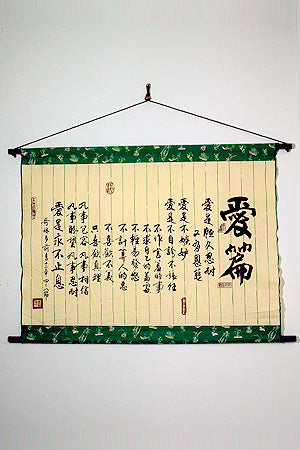 愛篇
愛是恆久忍耐
又有恩慈
愛是不嫉妒
愛是不自誇 不張狂
不作害羞的事
不求自己的益處
不輕易發怒
不計算人的惡
不喜歡不義
只喜歡真理
凡事包容 凡事相信
凡事盼望 凡事忍耐
愛是永不止息
哥林多前書十三章四~八節